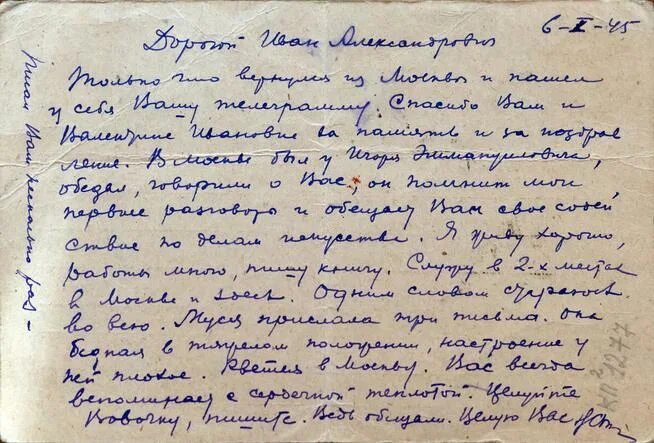 6-X-45
Дорогой Иван Александрович
Только что вернулся из Москвы и нашел
у себя Вашу телеграмму. Спасибо Вам и
Валентине Ивановне за память и за поздрав
ление. В Москве был у Игоря Эммануиловича,
обедал, говорили о Вас, он помнит мои
первые разговоры и обещает Вам свое содей
ствие по делам искусства. Я живу хорошо,
работы много, пишу книгу. Служу в 2-х местах
в Москве и здесь. Одним словом стараюсь
во всю. Муся прислала три письма. Она
бедная в тяжелом положении, настроение у
ней плохое. Рвется в Москву. Вас всегда
вспоминает с сердечной теплотой. Целуйте
Вовочку, пишите. Ведь обещали. Целую Вас
Писал Вам несколько раз -
КП 1277
2